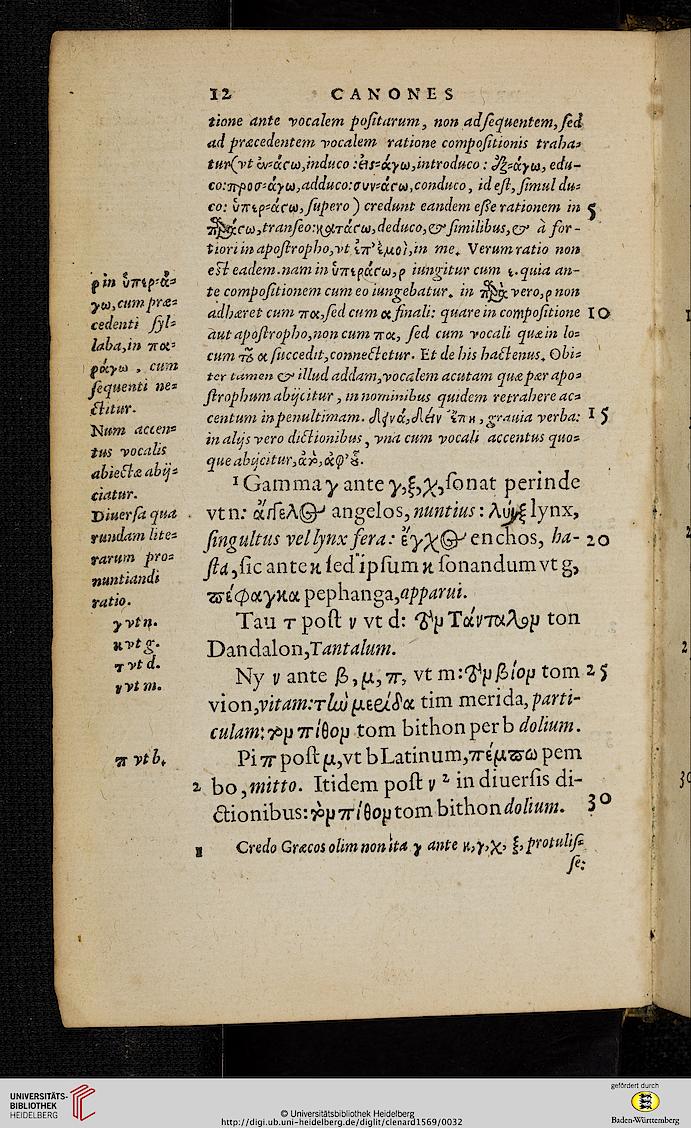 12 CANONES
tione ante vocalem positarum, non ad sequentem, sed
ad præcedentem vocalem ratione compositionis traha=
tur(vt ἐν=άγω, induco: εἰσ=άγω, introduco: ἐξ=άγω, edu=
co: προσ=άγω, adduco: συν=άγω, conduco, id est, simul du=
co: ὑπερ=άγω, supero) credunt eandem esse rationem in 5
παράγω, transeo: κατάγω, deduco, & similibus, & à for-
tiori in apostropho, vt ἐπ' ἐμοὶ, in me. Verum ratio non
est eadem. nam in ὑπεράγω, ρ iungitur cum ε. quia an-
te compositionem cum eo iungebatur. in παρὰ vero, ρ non
adhæret cum πα, sed cum α finali: quare in compositione 10
aut apostropho, non cum πα, sed cum vocali quæ in lo=
cum τοῦ α succedit, connectetur. Et de his hactenus. Obi=
ter tamen & illud addam, vocalem acutam quæ per apo=
strophum abijcitur, in nominibus quidem retrahere ac=
centum in penultimam. δεινά, δείν' ἔπη, grauia verba: 15
in alijs vero dictionibus, vnà cum vocali accentus quo=
que abijcitur, ἀπὸ, ἀφ' οὗ.
1 Gamma γ ante γ, ξ, χ, sonat perinde
vt n: ἄγγελος angelos, nuntius: λύγξ lynx,
singultus vel lynx fera: ἔγχος enchos, ha- 20
sta, sic ante κ sed ipsum κ sonandum vt g,
πέφαγκα pephanga, apparui.
Tau τ post ν vt d: τὸν Τάνταλον ton
Dandalon, Tantalum.
Ny ν ante β, μ, π, vt m: τὸν βίον tom 25
vion, vitam: τὴν μερίδα tim merida, parti-
culam: τὸν πίθον tom bithon per b dolium.
Pi π post μ, vt b Latinum, πέμπω pem
2 bo, mitto. Itidem post ν 2 in diuersis di-
ctionibus: τὸν πίθον tom bithon dolium. 30
1 Credo Græcos olim non ita γ ante κ, γ, χ, ξ, protulis=
se:
ρ in ὑπερ=ά=
γω, cum præ=
cedenti syl=
laba, in πα=
ράγω, cum
sequenti ne=
ctitur.
Num accen=
tus vocalis
abiectæ abij=
ciatur.
Diuersa qua
rundam lite=
rarum pro=
nuntiandi
ratio.
γ vt n.
κ vt g.
τ vt d.
ν vt m.
π vt b.
UNIVERSITÄTS-
BIBLIOTHEK
HEIDELBERG
© Universitätsbibliothek Heidelberg
http://digi.ub.uni-heidelberg.de/diglit/clenard1569/0032
gefördert durch
Baden-Württemberg